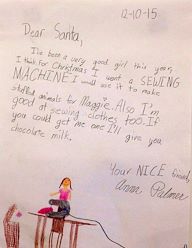 12-10-15
Dear Santa,
I've been a very good girl this year,
I think for Christmas I want a SEWING
MACHINE I would use it to make
stuffed animals for Maggie. Also I'm
good at sewing clothes too. If
you could get me one I'll give you
chocolate milk.
Your NICE friend,
Anne Palmer